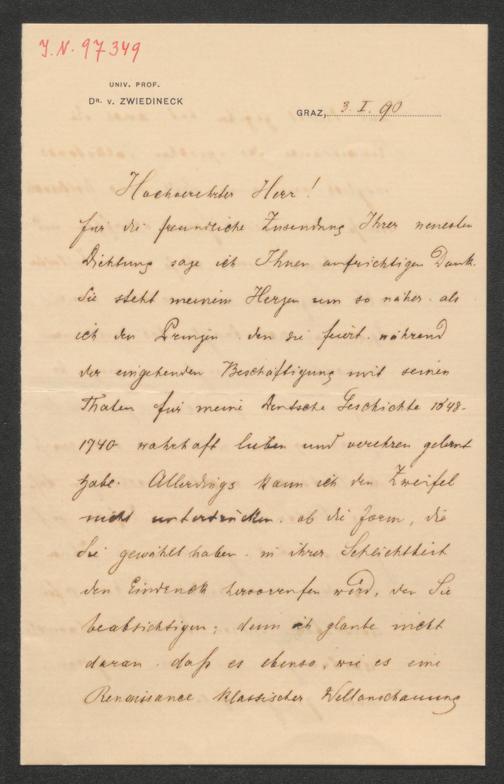 I.N. 97349
UNIV. PROF.
DR. V. ZWIEDINECK
GRAZ, 3. I. 90
Hochverehrter Herr!
für die freundliche Zusendung Ihrer neuesten
Dichtung sage ich Ihnen aufrichtigen Dank.
Sie steht meinem Herzen um so näher, als
ich den Prinzen den sie feiert, während
der eingehenden Beschäftigung mit seinen
Thaten für meine deutsche Geschichte 1648-
1740 wahrhaft lieben und verehren gelernt
habe. Allerdings kann ich den Zweifel
nicht unterdrücken, ob die Form, die
Sie gewählt haben, in ihrer Schlichtheit
den Eindruck hervorrufen wird, den Sie
beabsichtigen; denn ich glaube nicht
daran, daß es ebenso, wie es eine
Renaissance klassischer Weltanschauung